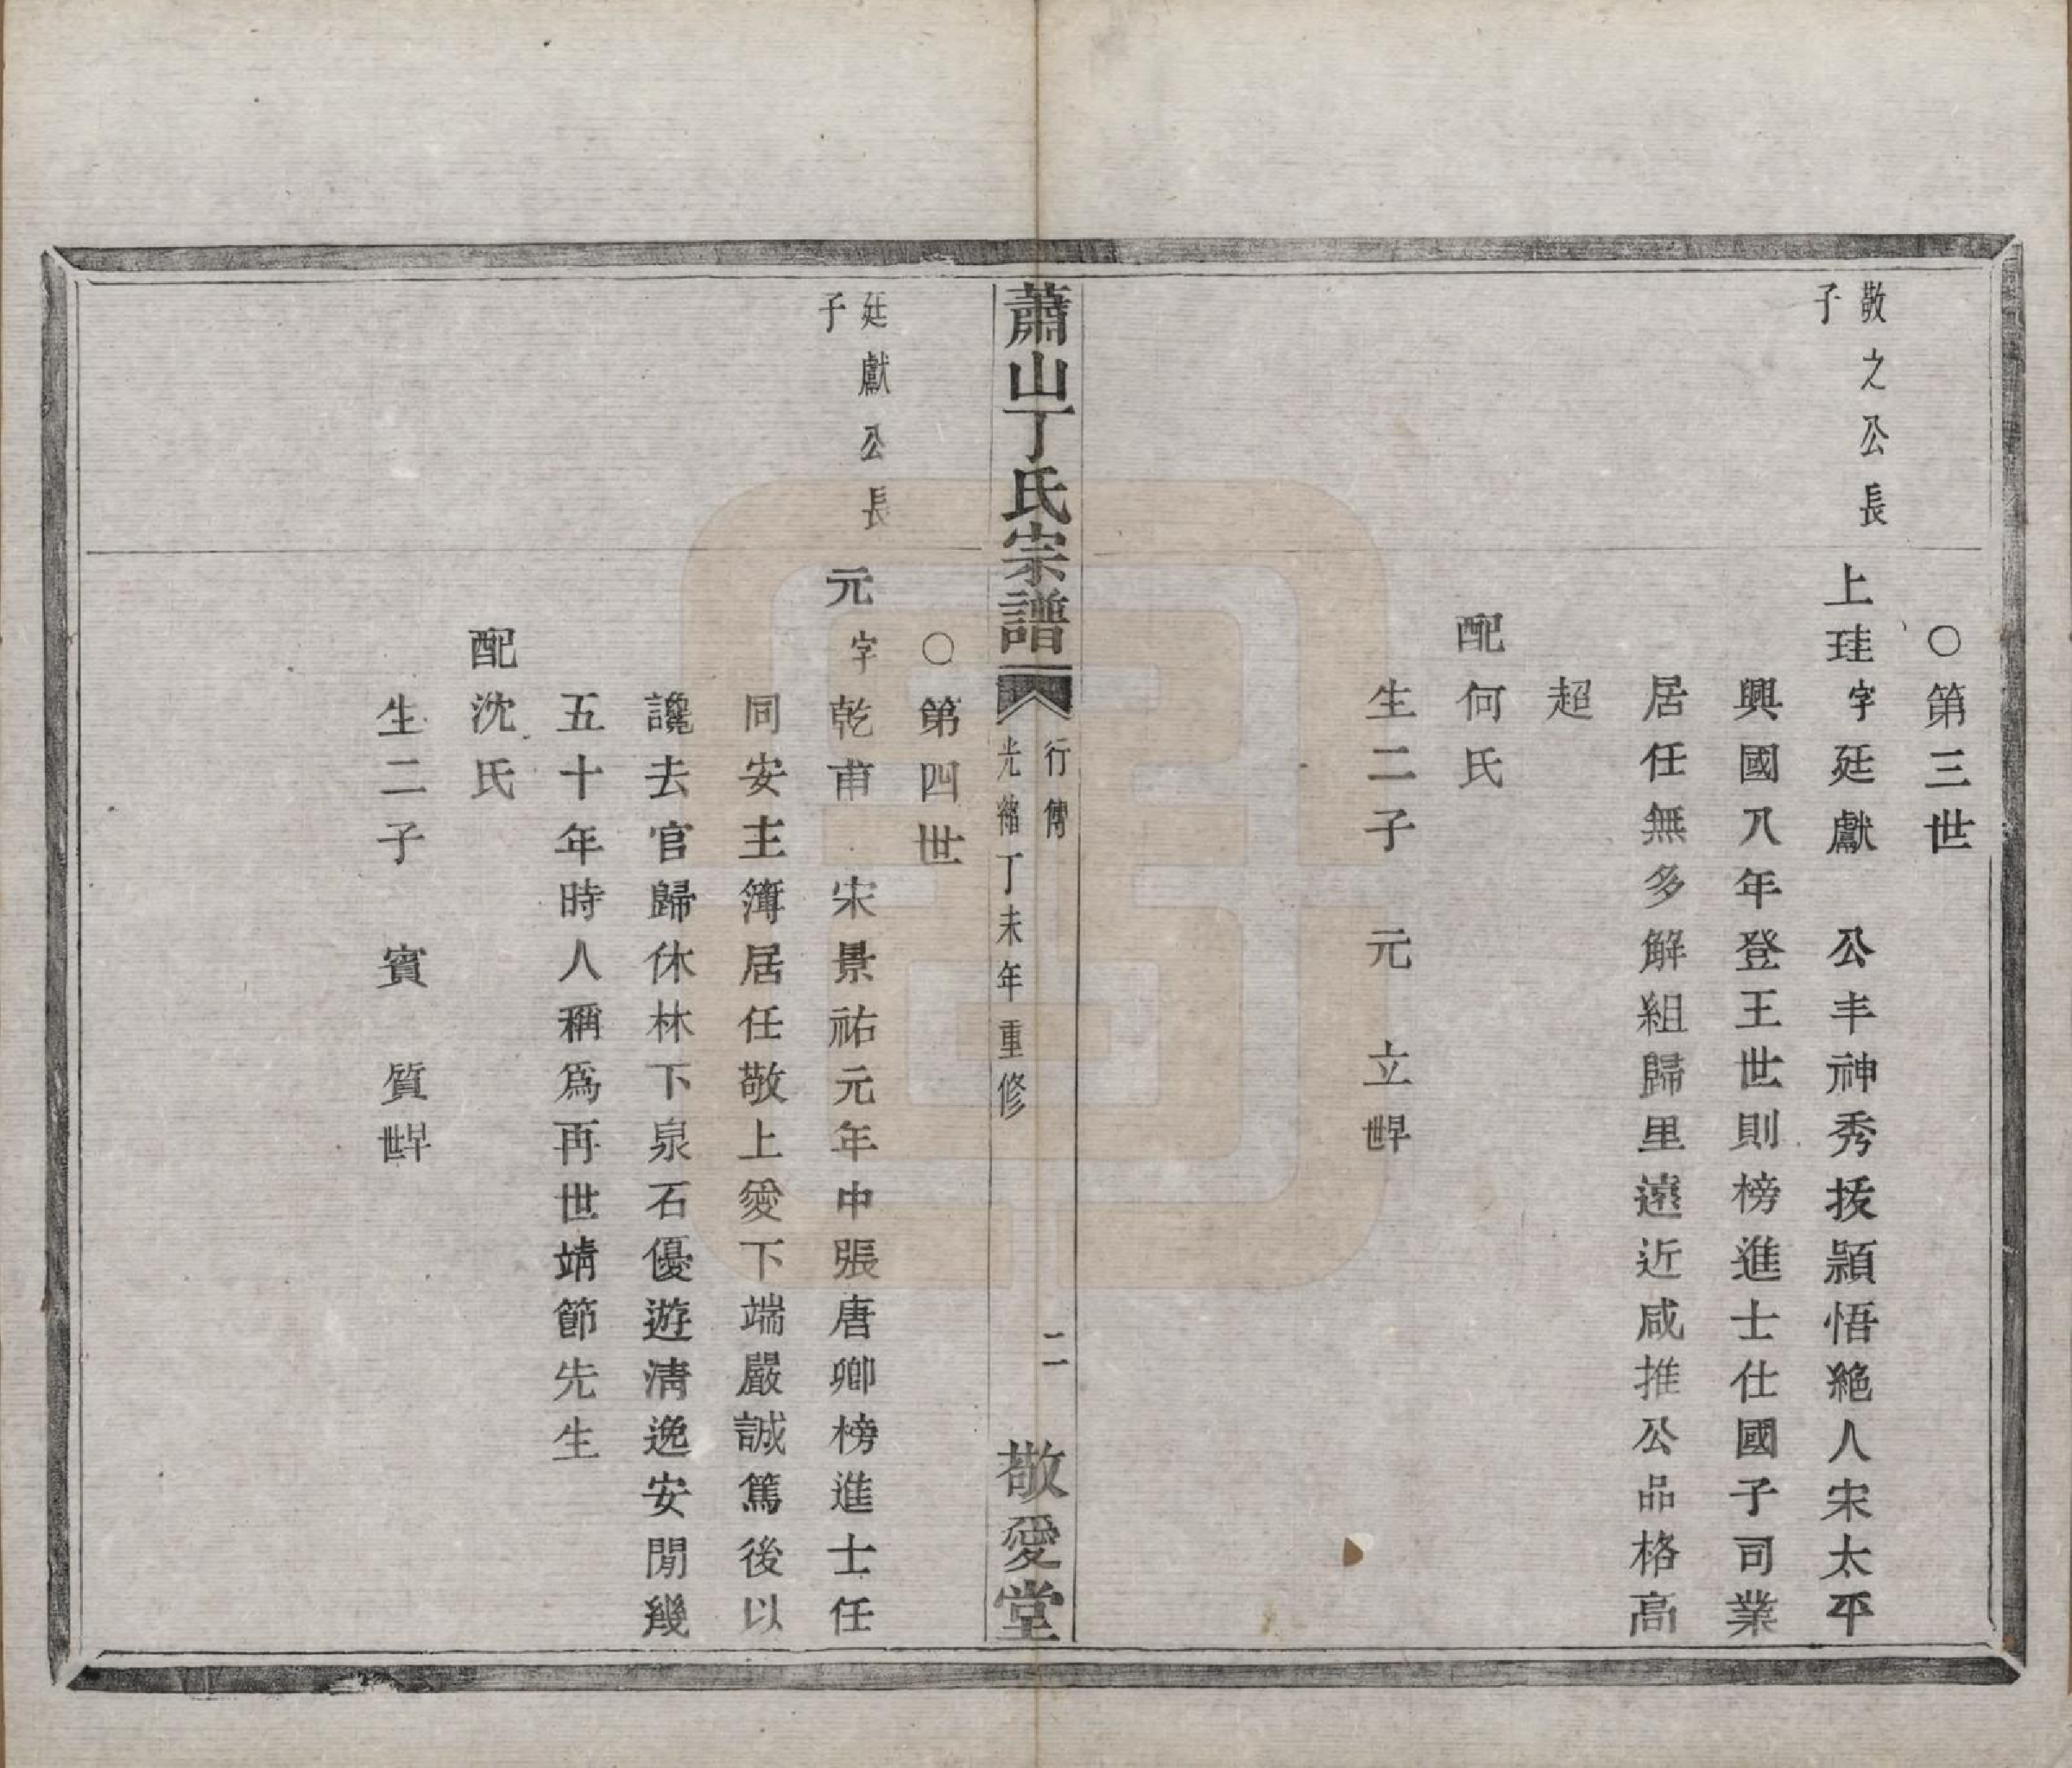 ○第三世
敬之公長
子
上珪字廷獻　公丰神秀拔穎悟絶人宋太平
興國八年登王世則榜進士仕國子司業
居任無多解組歸里遠近咸推公品格高
超
配何氏
生二子　元　立早世
蕭山丁氏宗譜
行傳
光緒丁未年重修
二
敬愛堂
○第四世
廷獻公長
子
元字乾甫　宋景祐元年中張唐卿榜進士任
同安主簿居任敬上愛下端嚴誠篤後以
讒去官歸休林下泉石優遊淸逸安閒幾
五十年時人稱爲再世靖節先生
配沈氏
生二子　賓　質早世